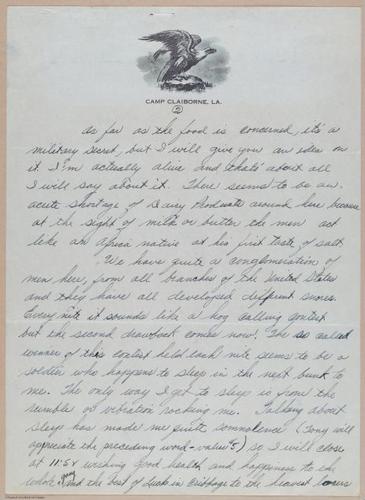 CAMP CLAIBORNE, LA.
2
As far as the food is concerned, it's a
military secret, but I will give you an idea on
it. I'm actually alive and that's about all
I will say about it. There seems to be an
acute shortage of Dairy Products around here because
at the sight of milk or butter the men act
like an Africa native at his first taste of salt.
We have quite a conglomeration of
men here, from all branches of the United States
and they have all developed different snores.
Every nite it sounds like a hog calling contest
but the second drawback comes now. The so called
winner of this contest held each nite seems to be a
soldier who happens to sleep in the next bunk to
me. The only way I get to sleep is from the
rumble or vibration rocking me. Talking about
sleep has made me quite somnolence (Tony will
appreciate the preceding word - value 5¢) so I will close
at 11:54 wishing good health and happiness to the
whole and the best of luck in Cribbage to the heaviest losers